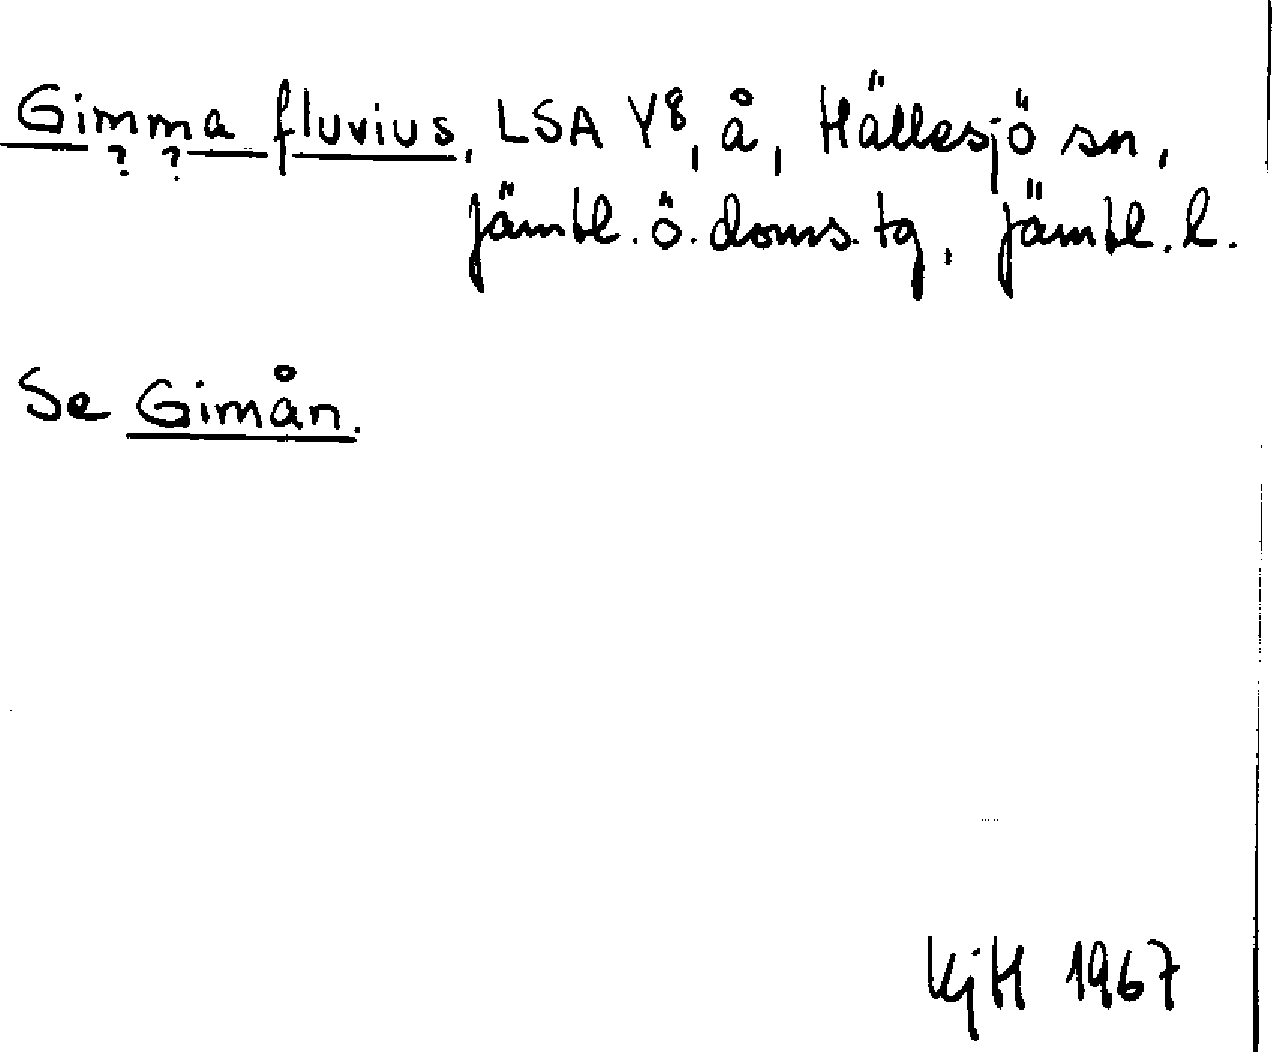 Gimma fluvius, LSA Y8, å, Hällesjö sn,
? ?
Jämtl. ö. doms. tg, Jämtl. l.
Se Gimån.
KjH 1967